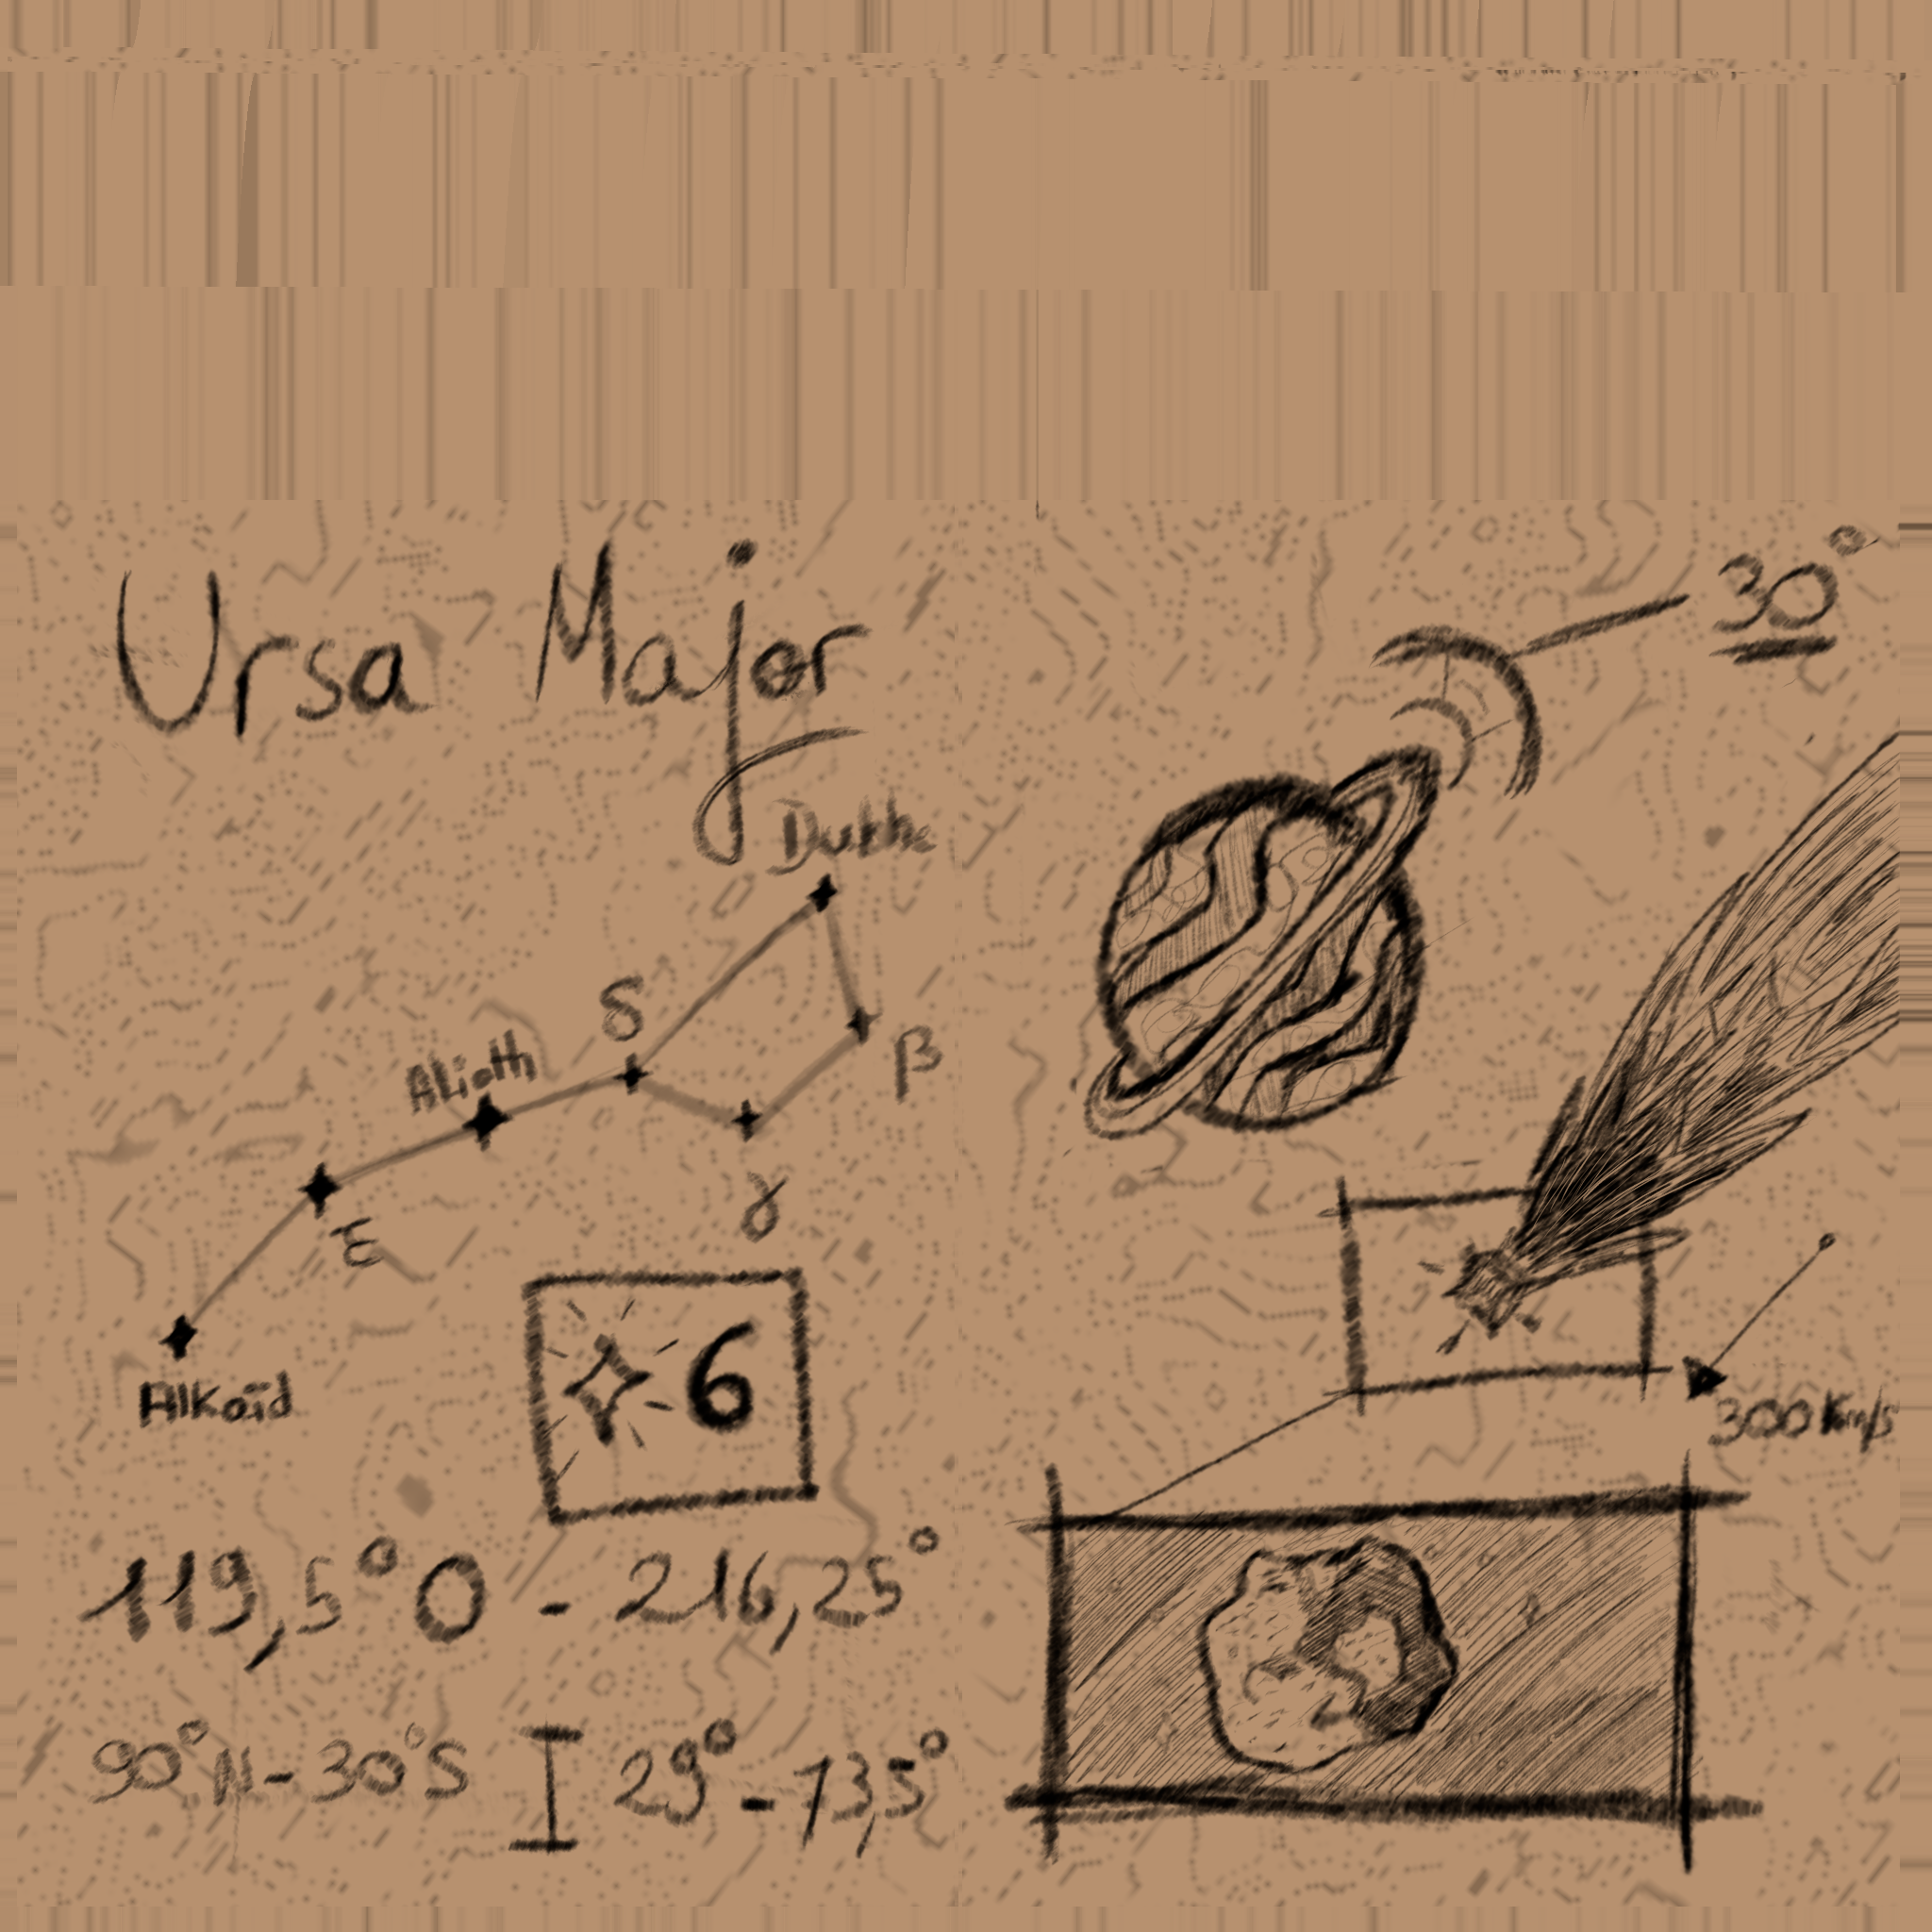 Ursa Major
Dukhe
δ
Alioth
β
ε
γ
Alkaïd
6
119,5°O - 216,25°
90°N - 30°S
29° - 73,5°
30°
300 Km/s